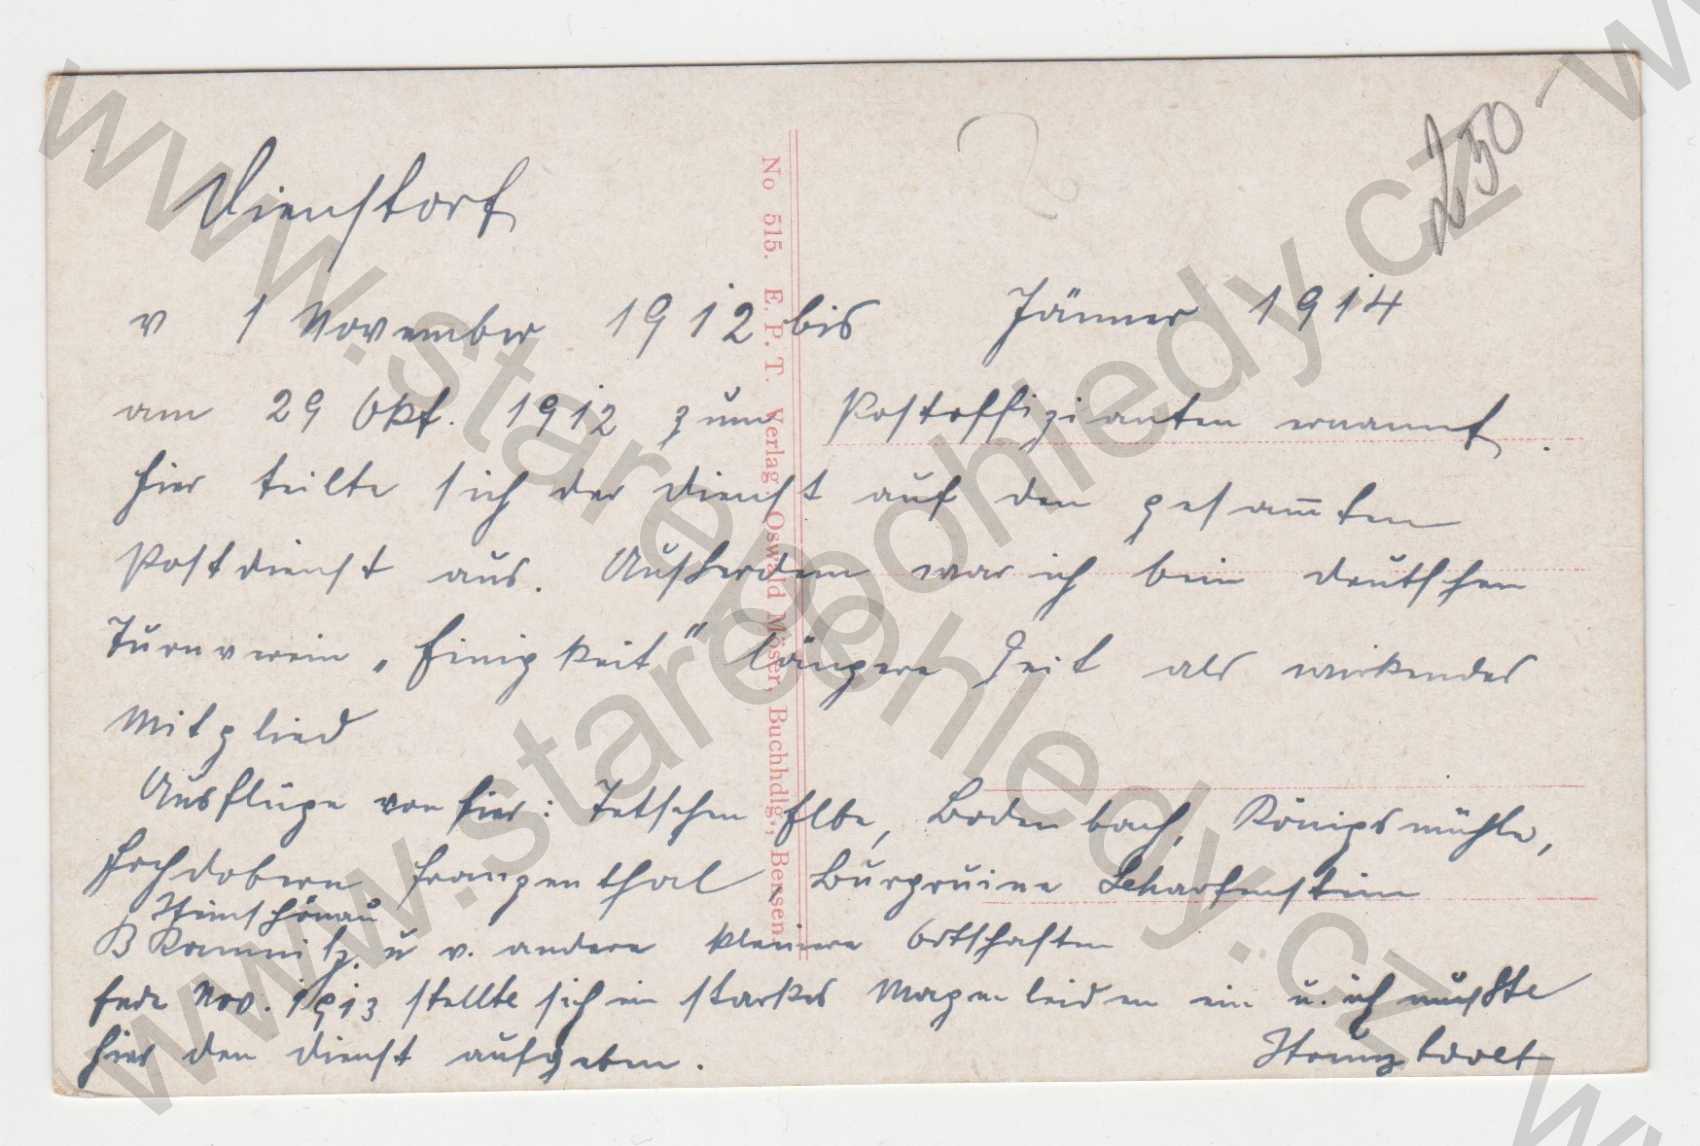 Dienstort
v 1 November 1912 bis Jänner 1914
am 29 Okt. 1912 zum Postoffizianten ernannt.
hier teilte sich der Dienst auf den gesam̅ten
Postdienst aus. Außerdem war ich beim deutschen
Turnverein „Einigkeit" längere Zeit als wirkendes
Mitglied
Ausflüge von hier: Tetschen Elbe, Bodenbach, Königsmühle,
Hochdobern Franzenthal, Burgruine Scharfenstein
Steinschönau
B Kamnitz. u v. andere kleinere Ortschaften
Ende Nov. 1913 stellte sich ein starkes Magenleiden ein u. ich mußte
hier den Dienst aufgeben.
No 515. E. P. T. Verlag Oswald Möser, Buchhdlg., Bensen.
250 -
www.starepohledy.cz
www.starepohledy.cz